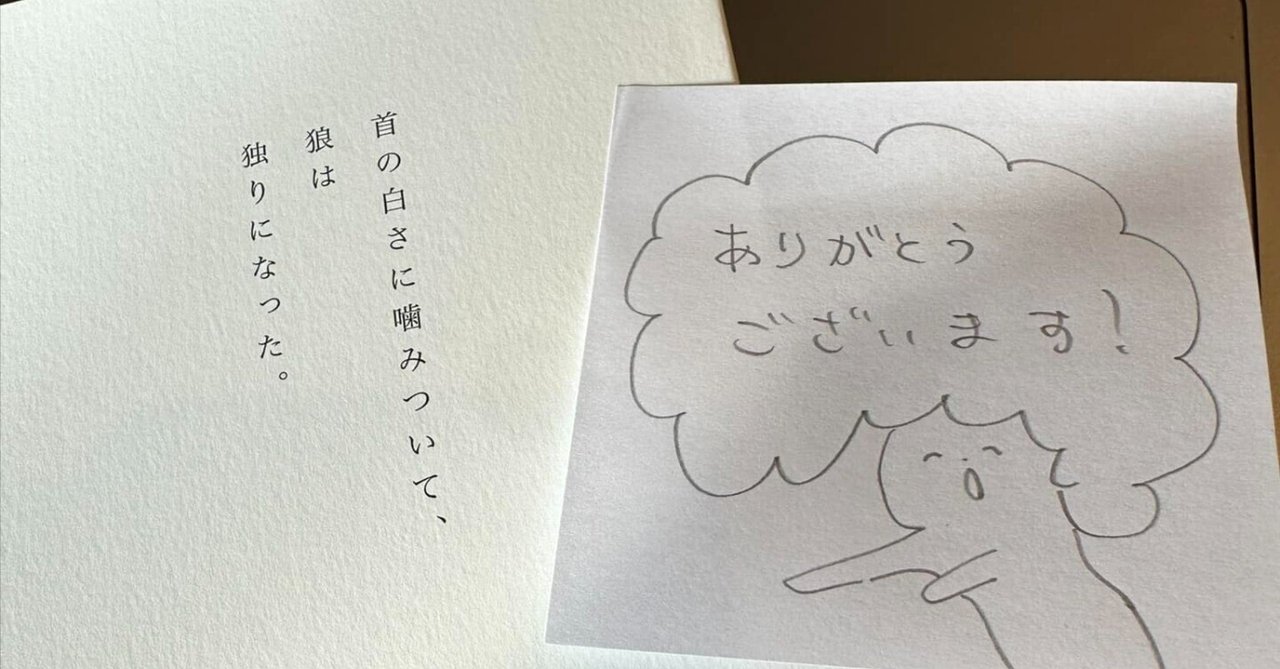 首の白さに噛みついて、
狼は
独りになった。
ありがとう
ございます!